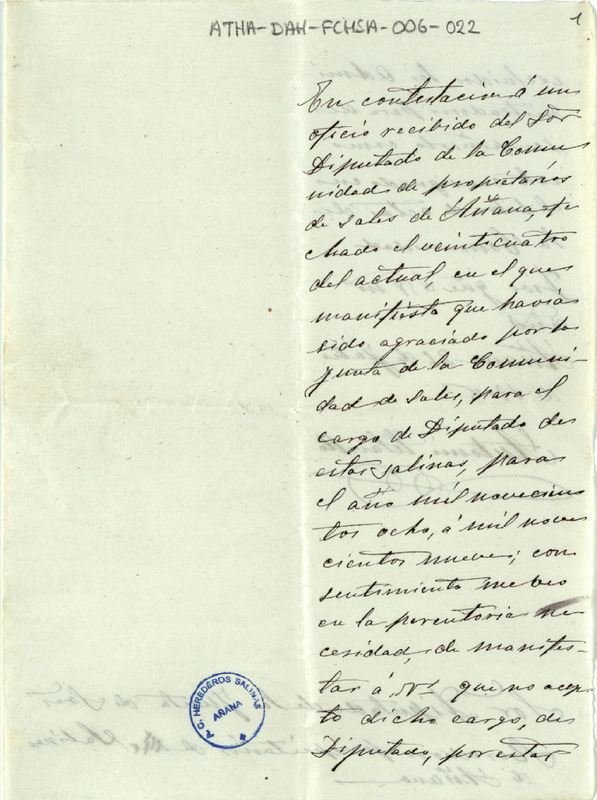 ATHA-DAH-FCHSA-006-022
1
En contestacion á un
oficio recibido del Sor
Diputado de la Comu
nidad de propietarios
de sales de Añana fe
chado el veinticuatro
del actual, en el que
manifiesta que havia
sido agraciado por la
Junta de la Comuni-
dad de sales, para el
cargo de Diputado de
estas salinas, para
el año mil novecien
tos ocho, á mil nove
cientos nueve; con
sentimiento me veo
en la perentoria ne
cesidad, de manifes-
tar á V. que no acep
to dicho cargo, de
Diputado, por estar
HEREDEROS SALINAS
AÑANA